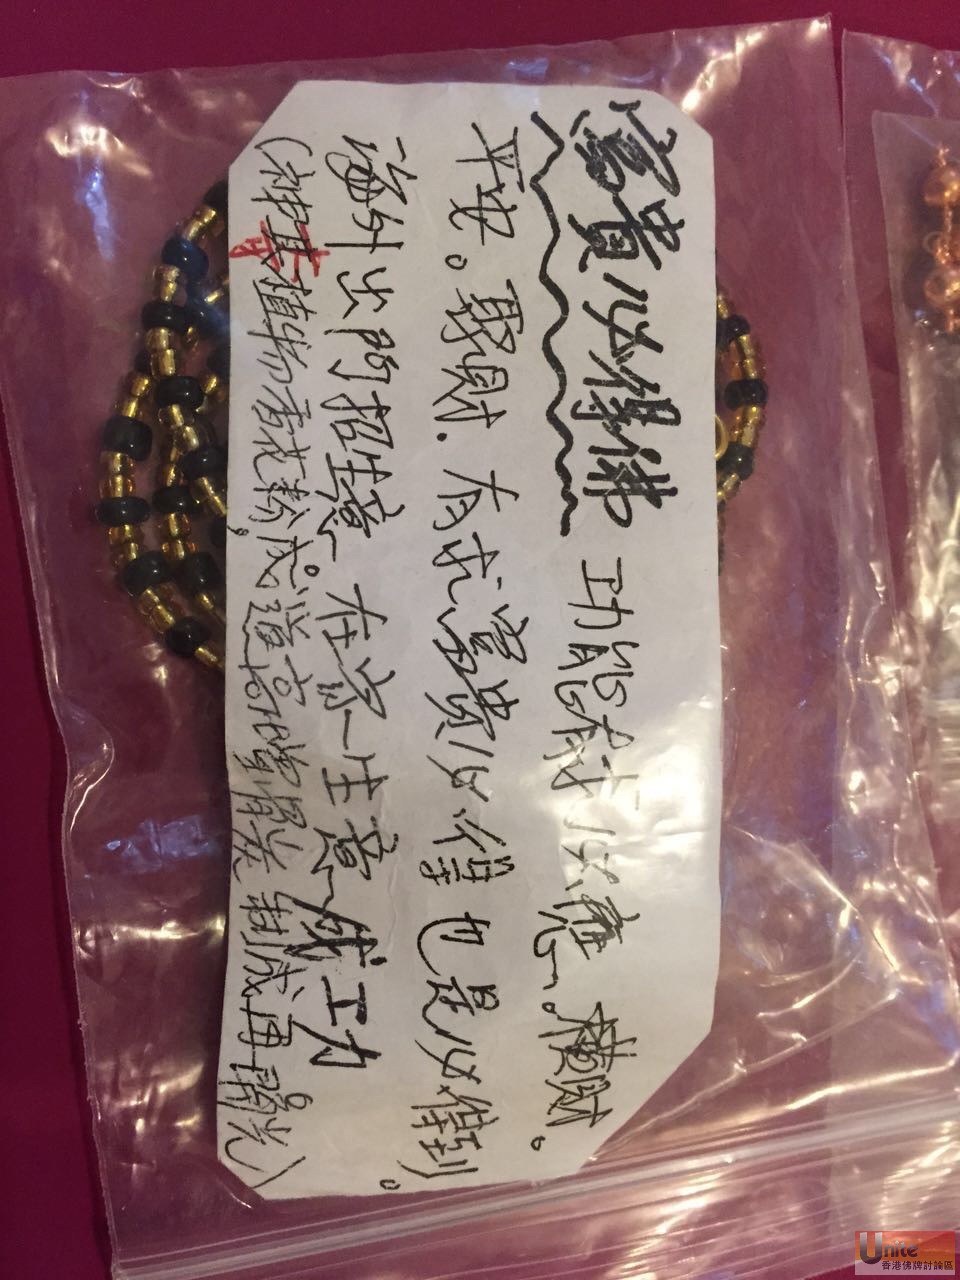 富貴必得佛 功能有求必應。橫財。
平安。聚財.有求富貴必得也是必得到。
海外出門招生意 在旁一生意成工力
(神草植物香花粉成。道 制成再開光)
Unite
香港佛牌討論區